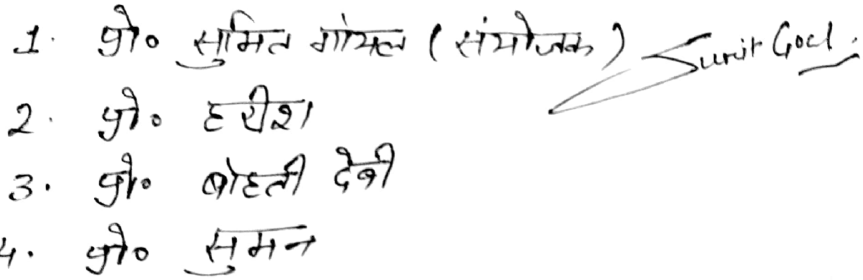 1. प्रो० सुमित गोयल (संयोजक) Sumit Goel.
2. प्रो० हरीश
3. प्रो० बोहती देवी
4. प्रो० सुमन